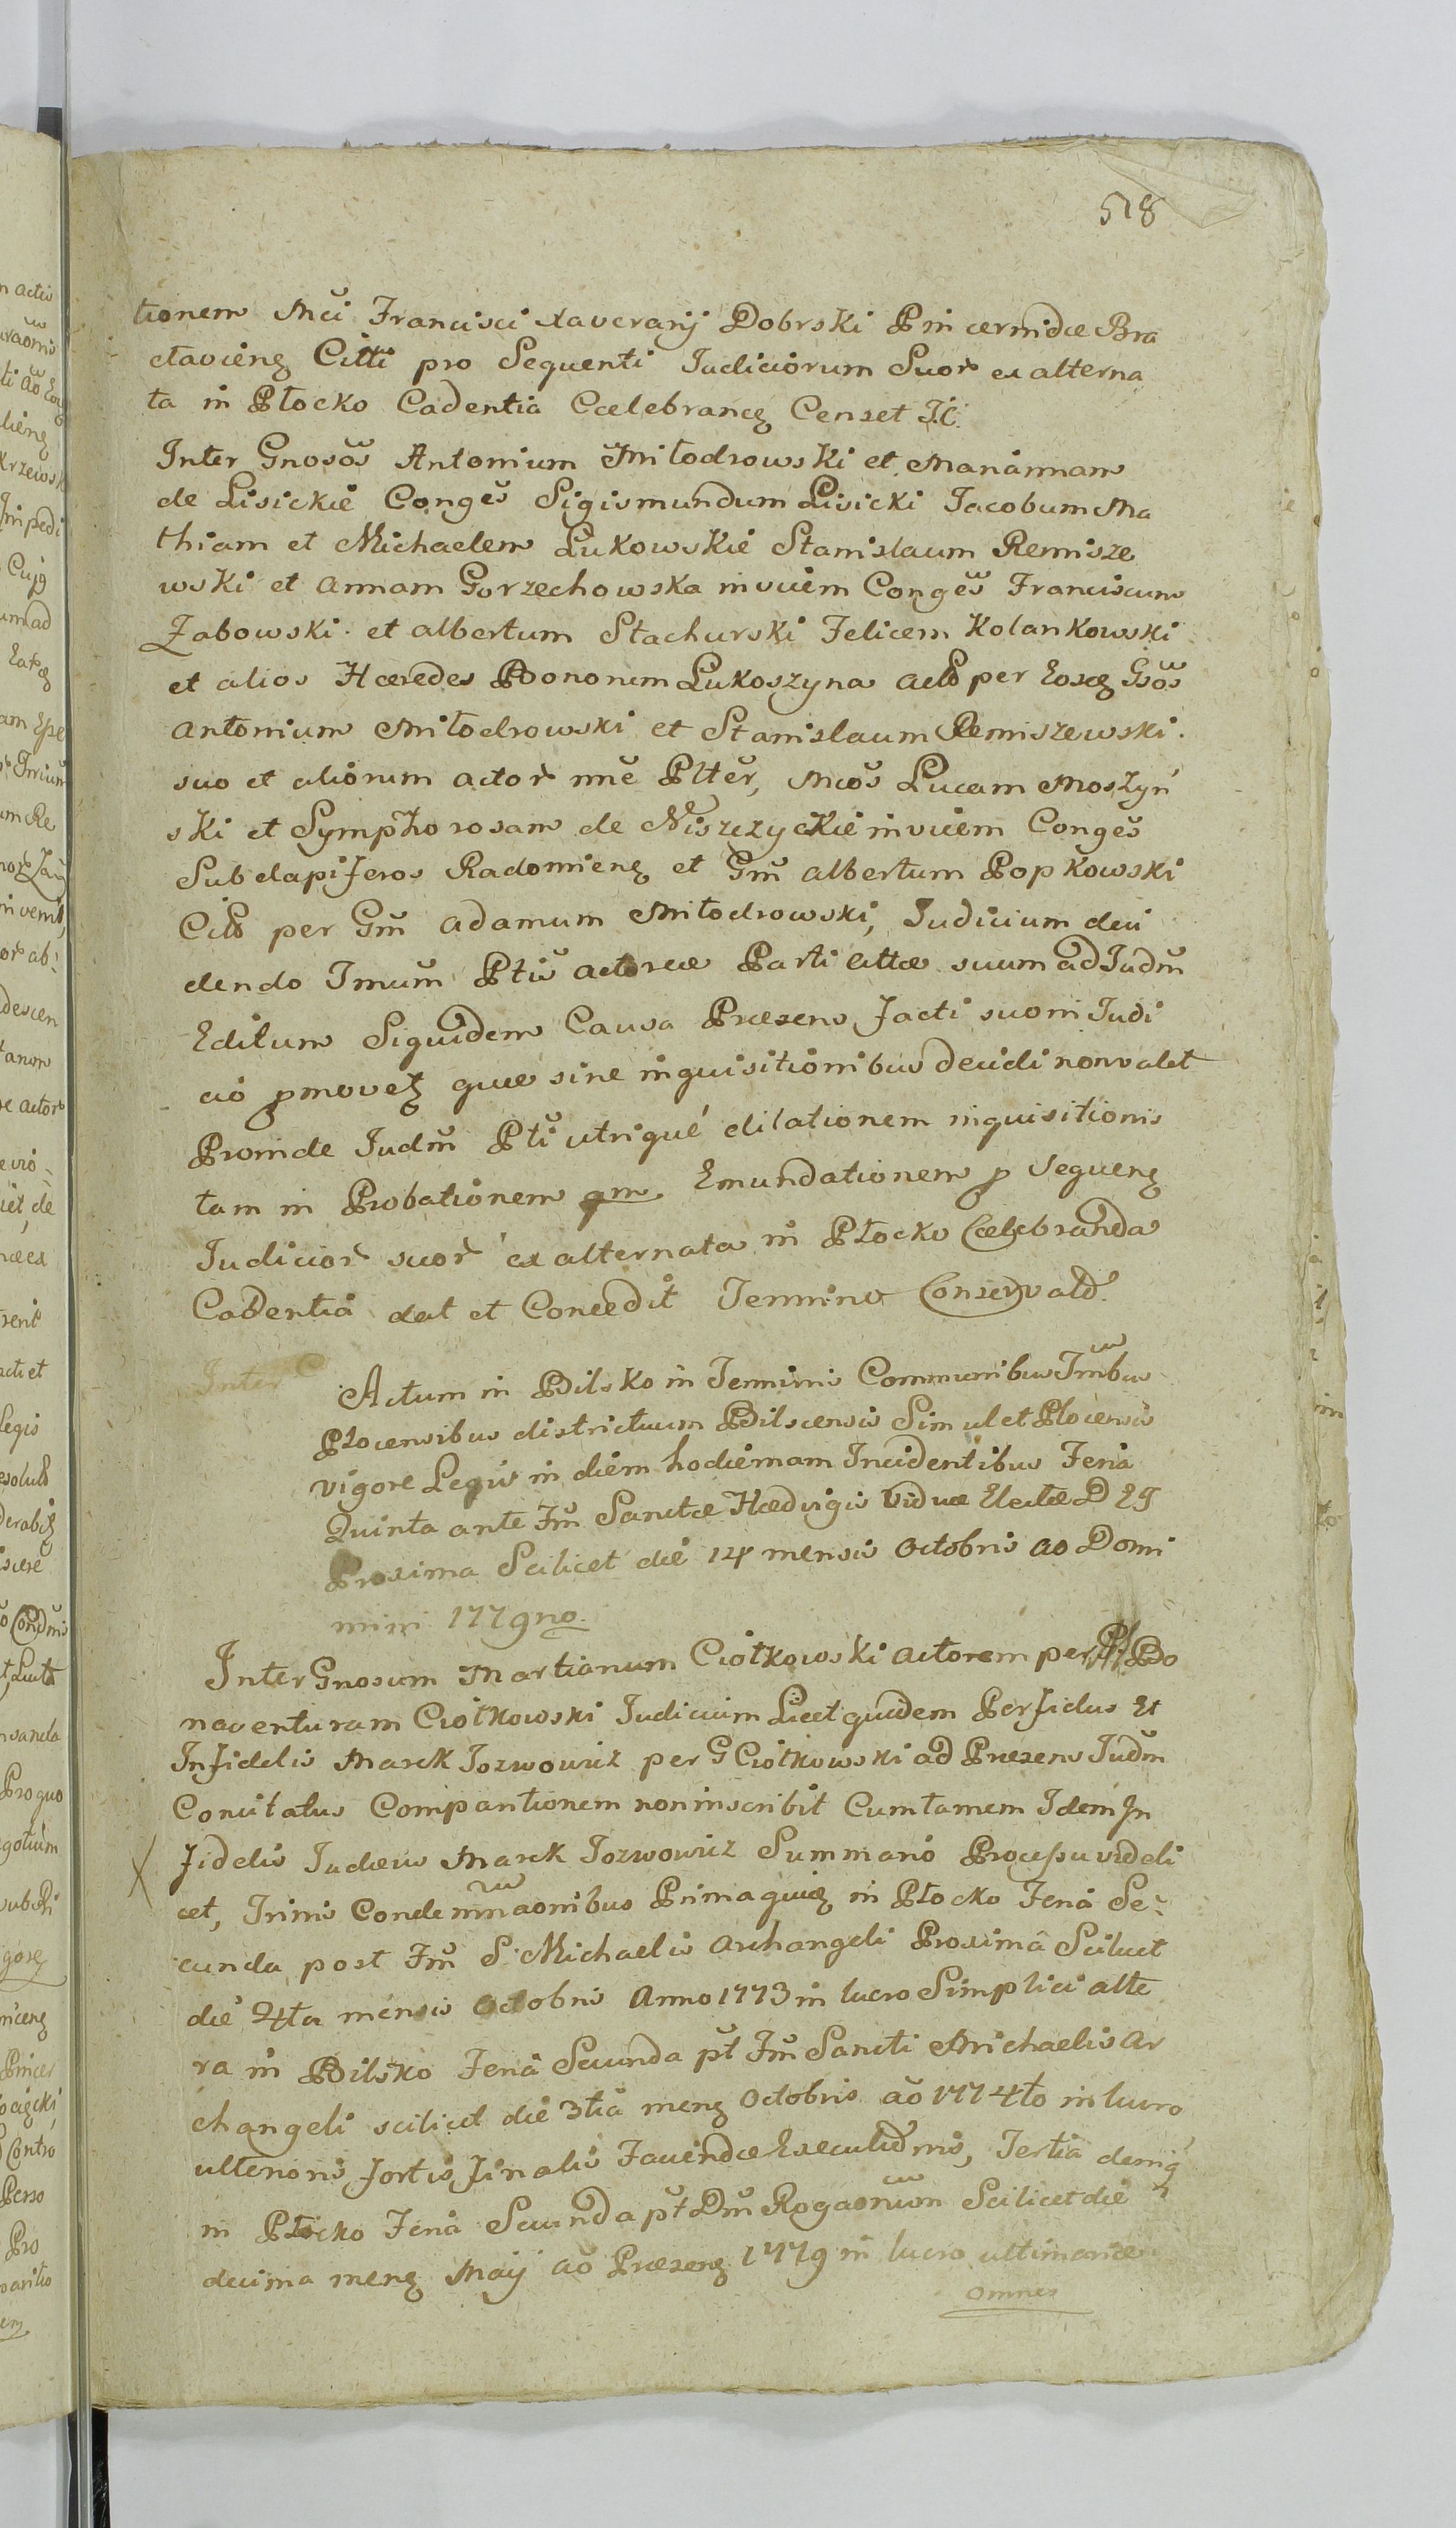 518
tionem Mci Francisci Xaveranÿ Dobrski Pincernidæ Bra
clavieng Citti pro Sequenti Judiciorum Suor ex alterna
ta in Płocko Cadentia Cælebrancg Censet J.C.
Inter Gnosos Antonium Miłodrowski et Mariannam
de Lisickie Conges Sigismundum Lisicki Jacobum Ma
thiam et Michaelem Łukowskie Stanislaum Remisze
wski et Annam Gorzechowska invicem Conges Franciscum
Żabowski et Albertum Stachurski Felicem Kolankowski
et alios Hæredes Bononum Łukoszyna per Eosg Gsos
Antonium Miłodrowski et Stanislaum Remiszewski.
suo et aliorum actor nne Plter, Mcos Lucam Moszyń
ski et Symphorosam de Niszczyckie invicem Conges
Subdapiferos Radomieng et Gm Albertum Popkowski
per Gm Adamum Miłodrowski, Judicium deci
dendo Tmum Pttu actoreæ Parti cittæ suum ad Judm
Editum Siquidem Causa Præsens facti suomi Judi
cio pmovetg quæ sine inquisitionibus decidi non valet
Proinde Judm Pti utrique dilationem inquisitionis
tam in Probationem qm Emundationem p Sequeng
Judicior suor ex alternata in Płocko Cælebranda
Cadentia dat et Concedit Termino Conservald.
Inter
Actum in Bilsko in Terminis Communibus Tmbus
Plocensibus districtuum Bilscensis Simul et Plocensis
vigore Legis in diem hodiernam Incidentibus Feria
Quinta ante Fm Sanctæ Hædvigis Viduæ Electæ D E I
Proxima Scilicet die 14 mensis Octobris ao Domi
mini 1779no.
Inter Gnosum Martianum Ciołkowski actorem per Bo
naventuram Ciołkowski Judicium Licet quidem Perfidus et
Infidelis Marek Jozwowicz per G Ciołkowski ad Præsens Judm
Concitatus Compantionem non inscribit Cum tamem Idem In
fidelis Judæus Marek Jozwowicz Summario Processu videli
cet, Trinis Condemnaonibus Prima quidg in Płocko Feria Se-
cunda post Fm S. Michaelis Archangeli Proxima Scilicet
die 4ta mensis Octobris Anno 1773 in lucro Simplici alte
ra in Bilsko Feria Secunda pt Fm Sancti Michaelis Ar
changeli scilicet die 3tia meng Octobris ao 1774to in lucro
ulterioris fortis finalis Faciendæ Executidnis, Tertia deniq
in Płocko Feria Secunda pt Dm Rogaonum Scilicet die
decima meng Maÿ ao Præseng 1779 in lucro ultimariæ
omnes